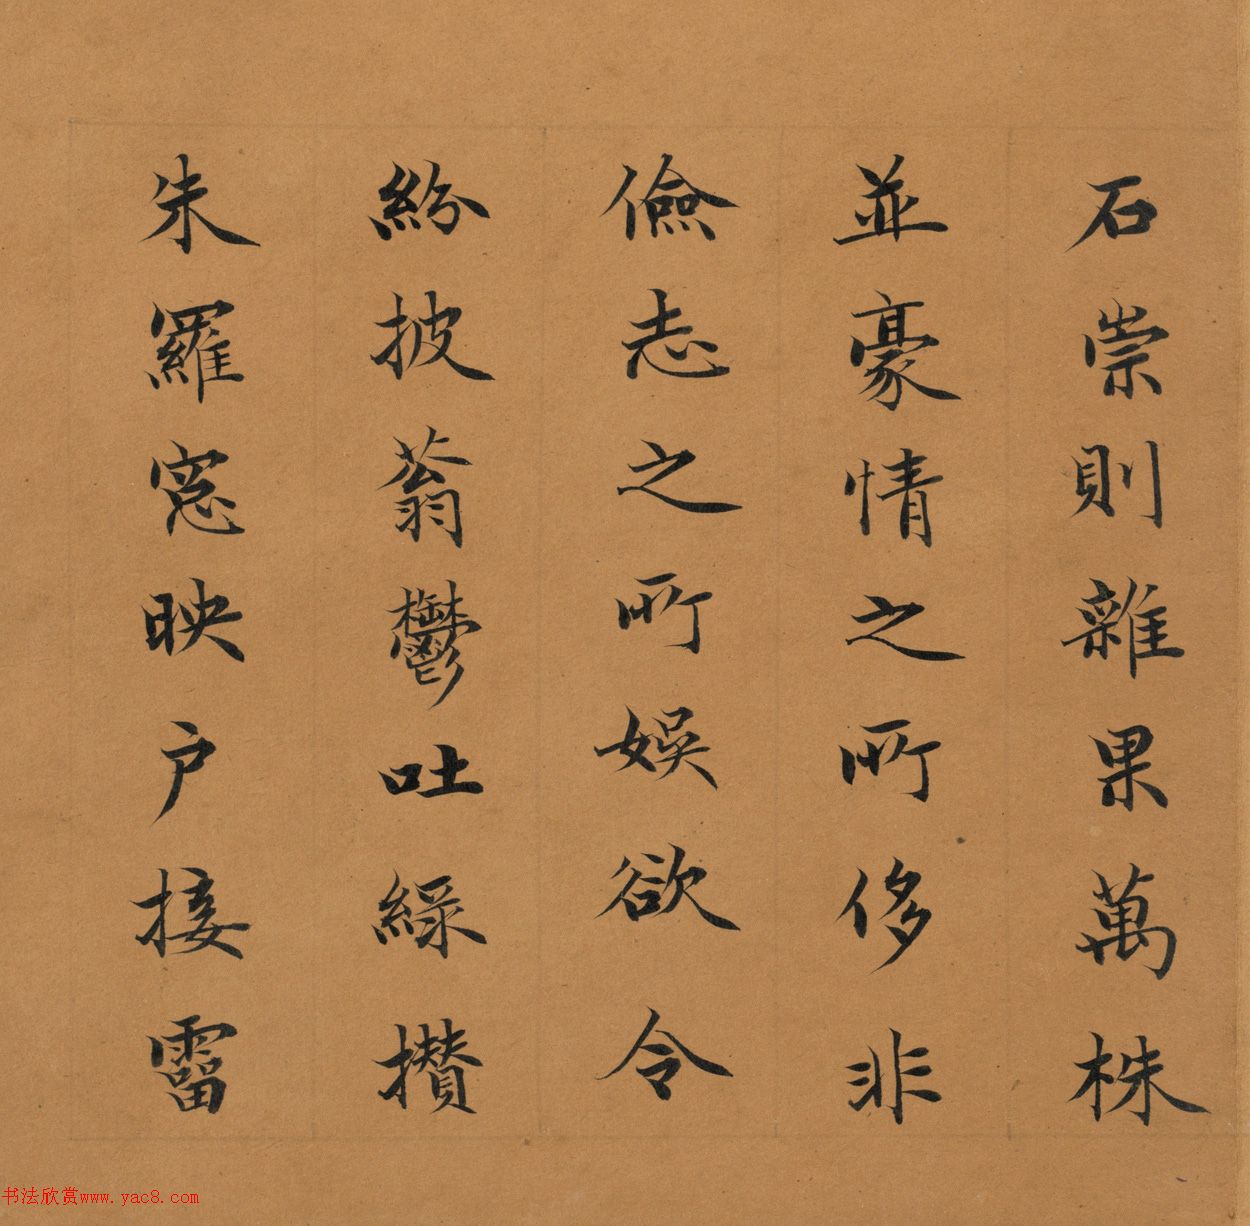 石崇則雜果萬株
並豪情之所侈非
儉志之所娛欲令
紛披蓊鬱吐綠攢
朱羅窓映户接霤
书法欣赏www.yac8.com